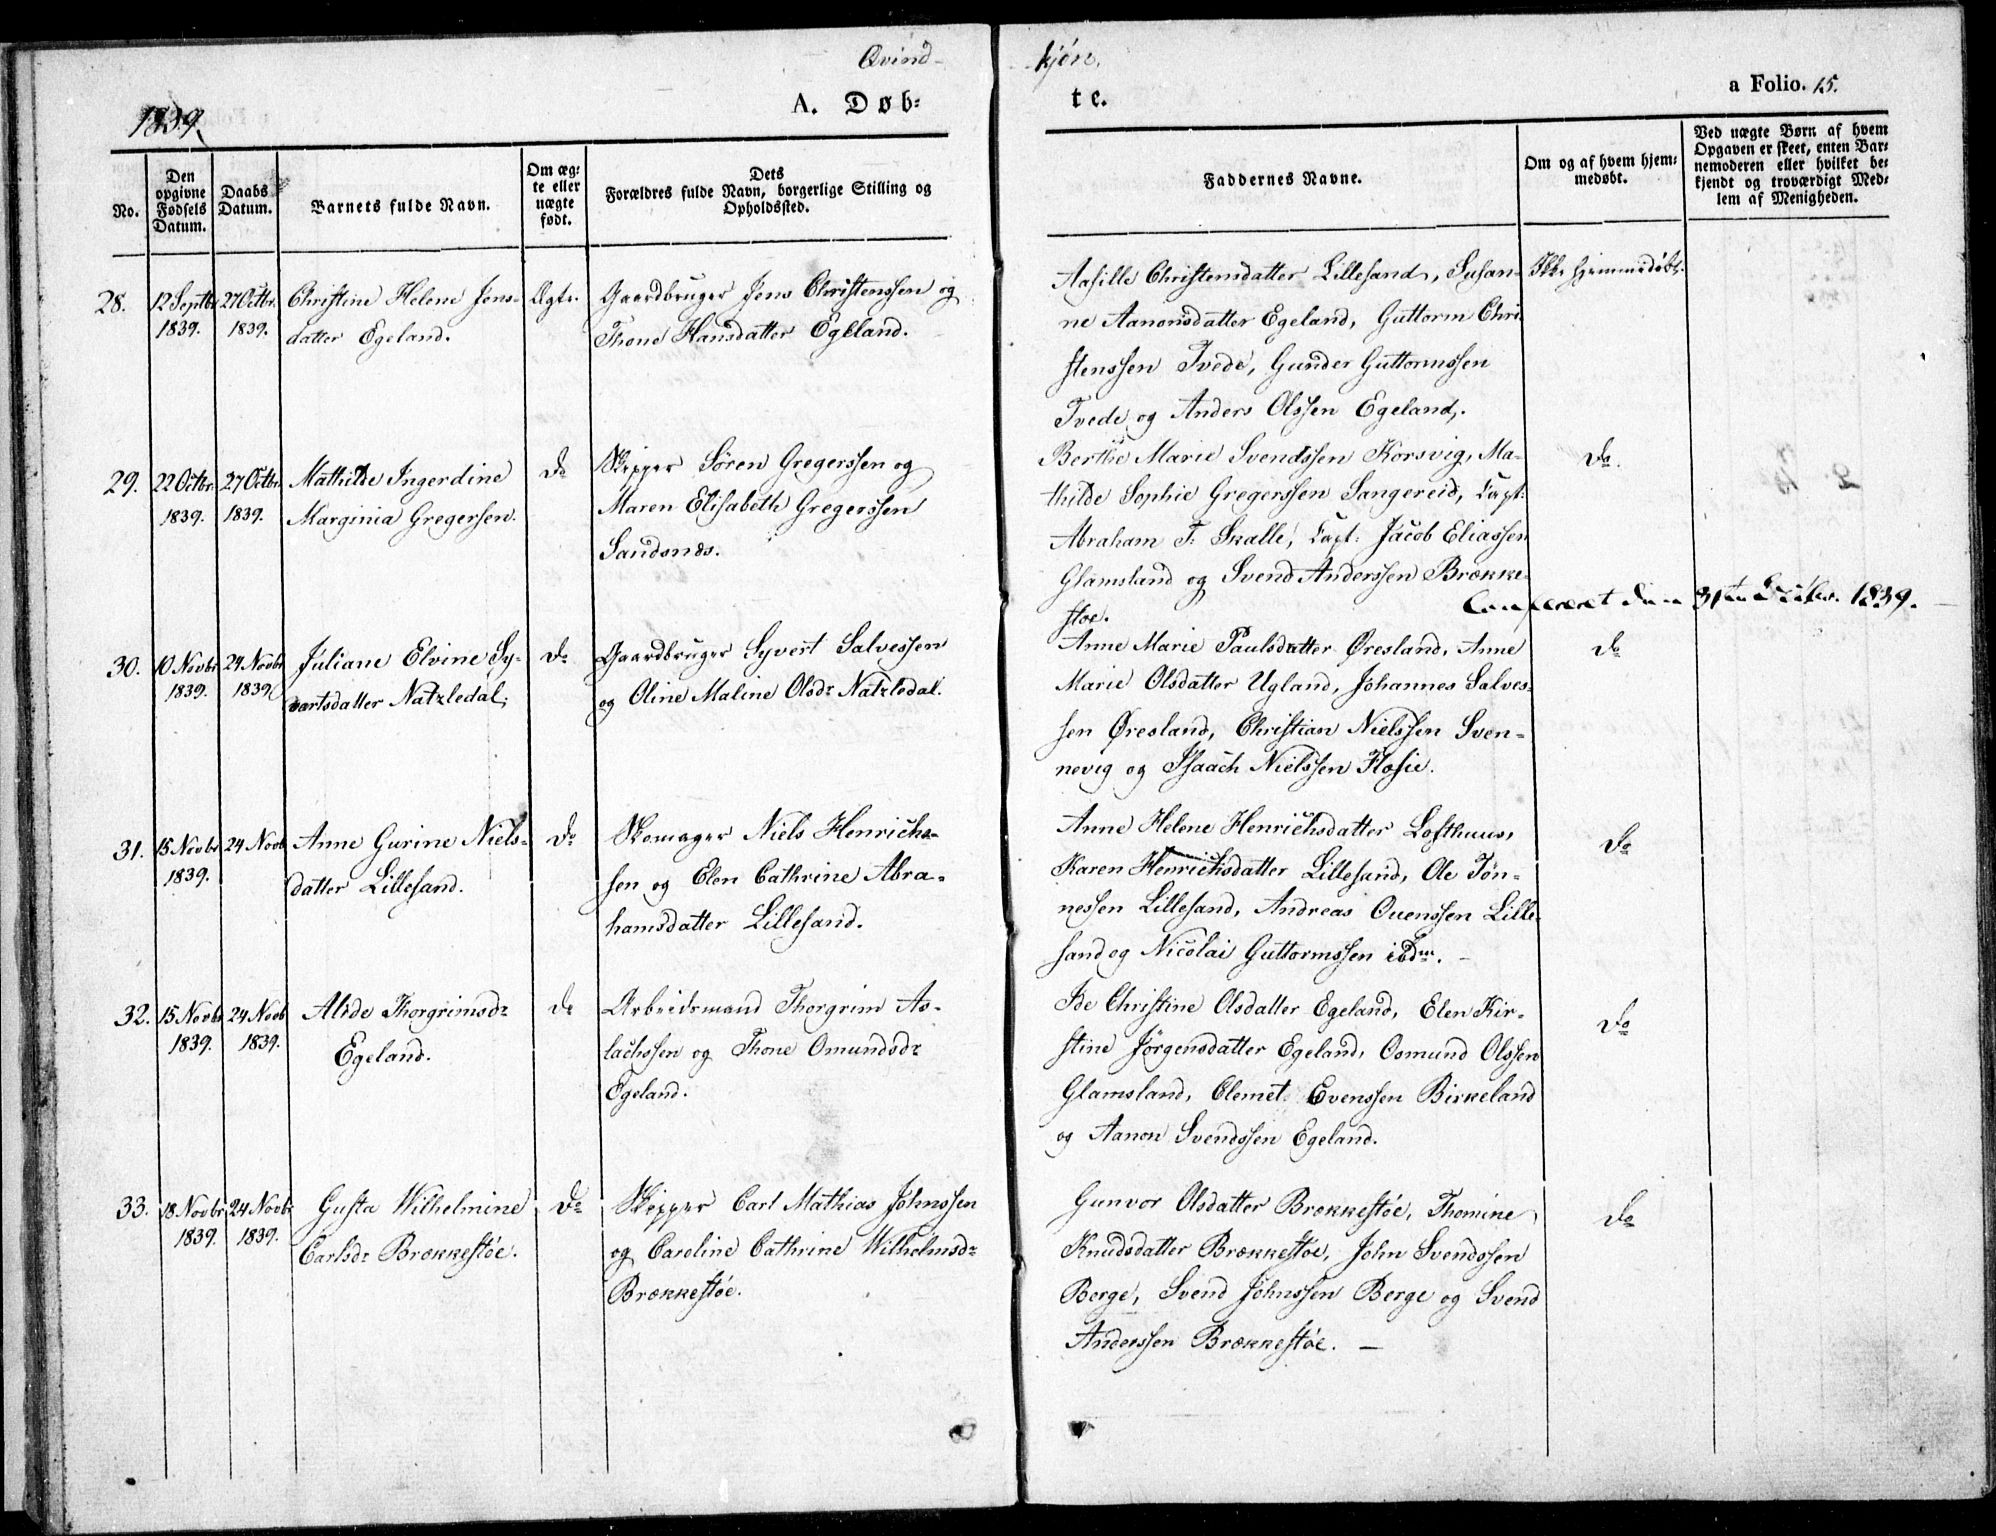 Qvind-
kjön.
1839.
A. Døb-
te.
a Folio. 15.
No.
Den opgivne Fødsels Datum.
Daabs Datum.
Barnets fulde Navn.
Om ægte eller uægte født.
Dets
Forældres fulde Navn, borgerlige Stilling og
Opholdssted.
Faddernes Navne.
Om og af hvem hjem-
medøbt.
Ved uægte Børn af hvem
Opgaven er skeet, enten Bar-
nemoderen eller hvilket be-
kjendt og troværdigt Med-
lem af Menigheden.
28.
12 Septbr
1839.
27 Octbr.
1839.
Christine Helene Jens-
datter Egeland.
Ægte.
Gaardbruger Jens Christenssen og
Thone Hansdatter Egeland.
Aasille Christensdatter Lillesand, Susan-
ne Aanonsdatter Egeland, Guttorm Chri-
stenssen Tvede, Gunder Guttormssen
Tvede og Anders Olssen Egeland.
Ikke hjemmedøbt.
29.
22 Octbr.
1839.
27 Octbr.
1839.
Mathilde Ingerdine
Marginia Gregersen.
Do
Skipper Sören Gregerssen og
Maren Elisabeth Gregerssen
Sandsnes.
Berthe Marie Svendssen Korsvig, Ma-
thilde Sophie Gregerssen Sangereid, Capt:
Abraham T: Skalle, Capt: Jacob Eliassen
Glamsland og Svend Anderssen Brække-
stöe.
Do.
Confereret den 31te 1839.
30.
10 Novbr
1839.
24 Novbr
1839.
Juliane Elvine Sy-
vertsdatter Natzledal.
Do
Gaardbruger Syvert Salvessen
og Oline Maline Olsdr Natzledal.
Anne Marie Paulsdatter Øresland, Anne
Marie Olsdatter Ugland, Johannes Salves-
sen Øresland, Christian Nielssen Sven-
nevig og Isaach Nielssen Flosie.
Do
31.
15 Novbr
1839.
24 Novb
Anne Gurine Niels-
datter Lillesand.
Do
Skomager Niels Henrichs-
sen og Elen Cathrine Abra-
hamsdatter Lillesand.
Anne Helene Henrichsdatter Lofthuus,
Karen Henrichsdatter Lillesand, Ole Tön-
nessen Lillesand, Andreas Ouenssen Lille-
sand og Nicolai Guttormssen ibdm. -
Do
32.
15 Novbr
1839.
24 Novb
1839.
Alide Thorgrimsdr
Egeland.
Do
Arbeidsmand Thorgrim As-
lachssen og Thone Omundsdr
Egeland.
Ide Christine Olsdatter Egeland, Elen Kir-
stine Jörgensdatter Egeland, Osmund Olssen
Glamsland, Clemet Evenssen Birkeland
og Aanon Svendssen Egeland.
Do
33.
18 Novbr
1839.
24 Novbr
1839.
Gusta Wilhelmine
Carlsdr Brækkestöe.
Do
Skipper Carl Mathias Johnssen
og Caroline Cathrine Wilhelmsdr
Brækkestöe.
Gunvor Olsdatter Brækkestöe, Thomine
Knudsdatter Brækkestöe, John Svendssen
Berge, Svend Johnssen Berge og Svend
Anderssen Brækkestöe. —
Do